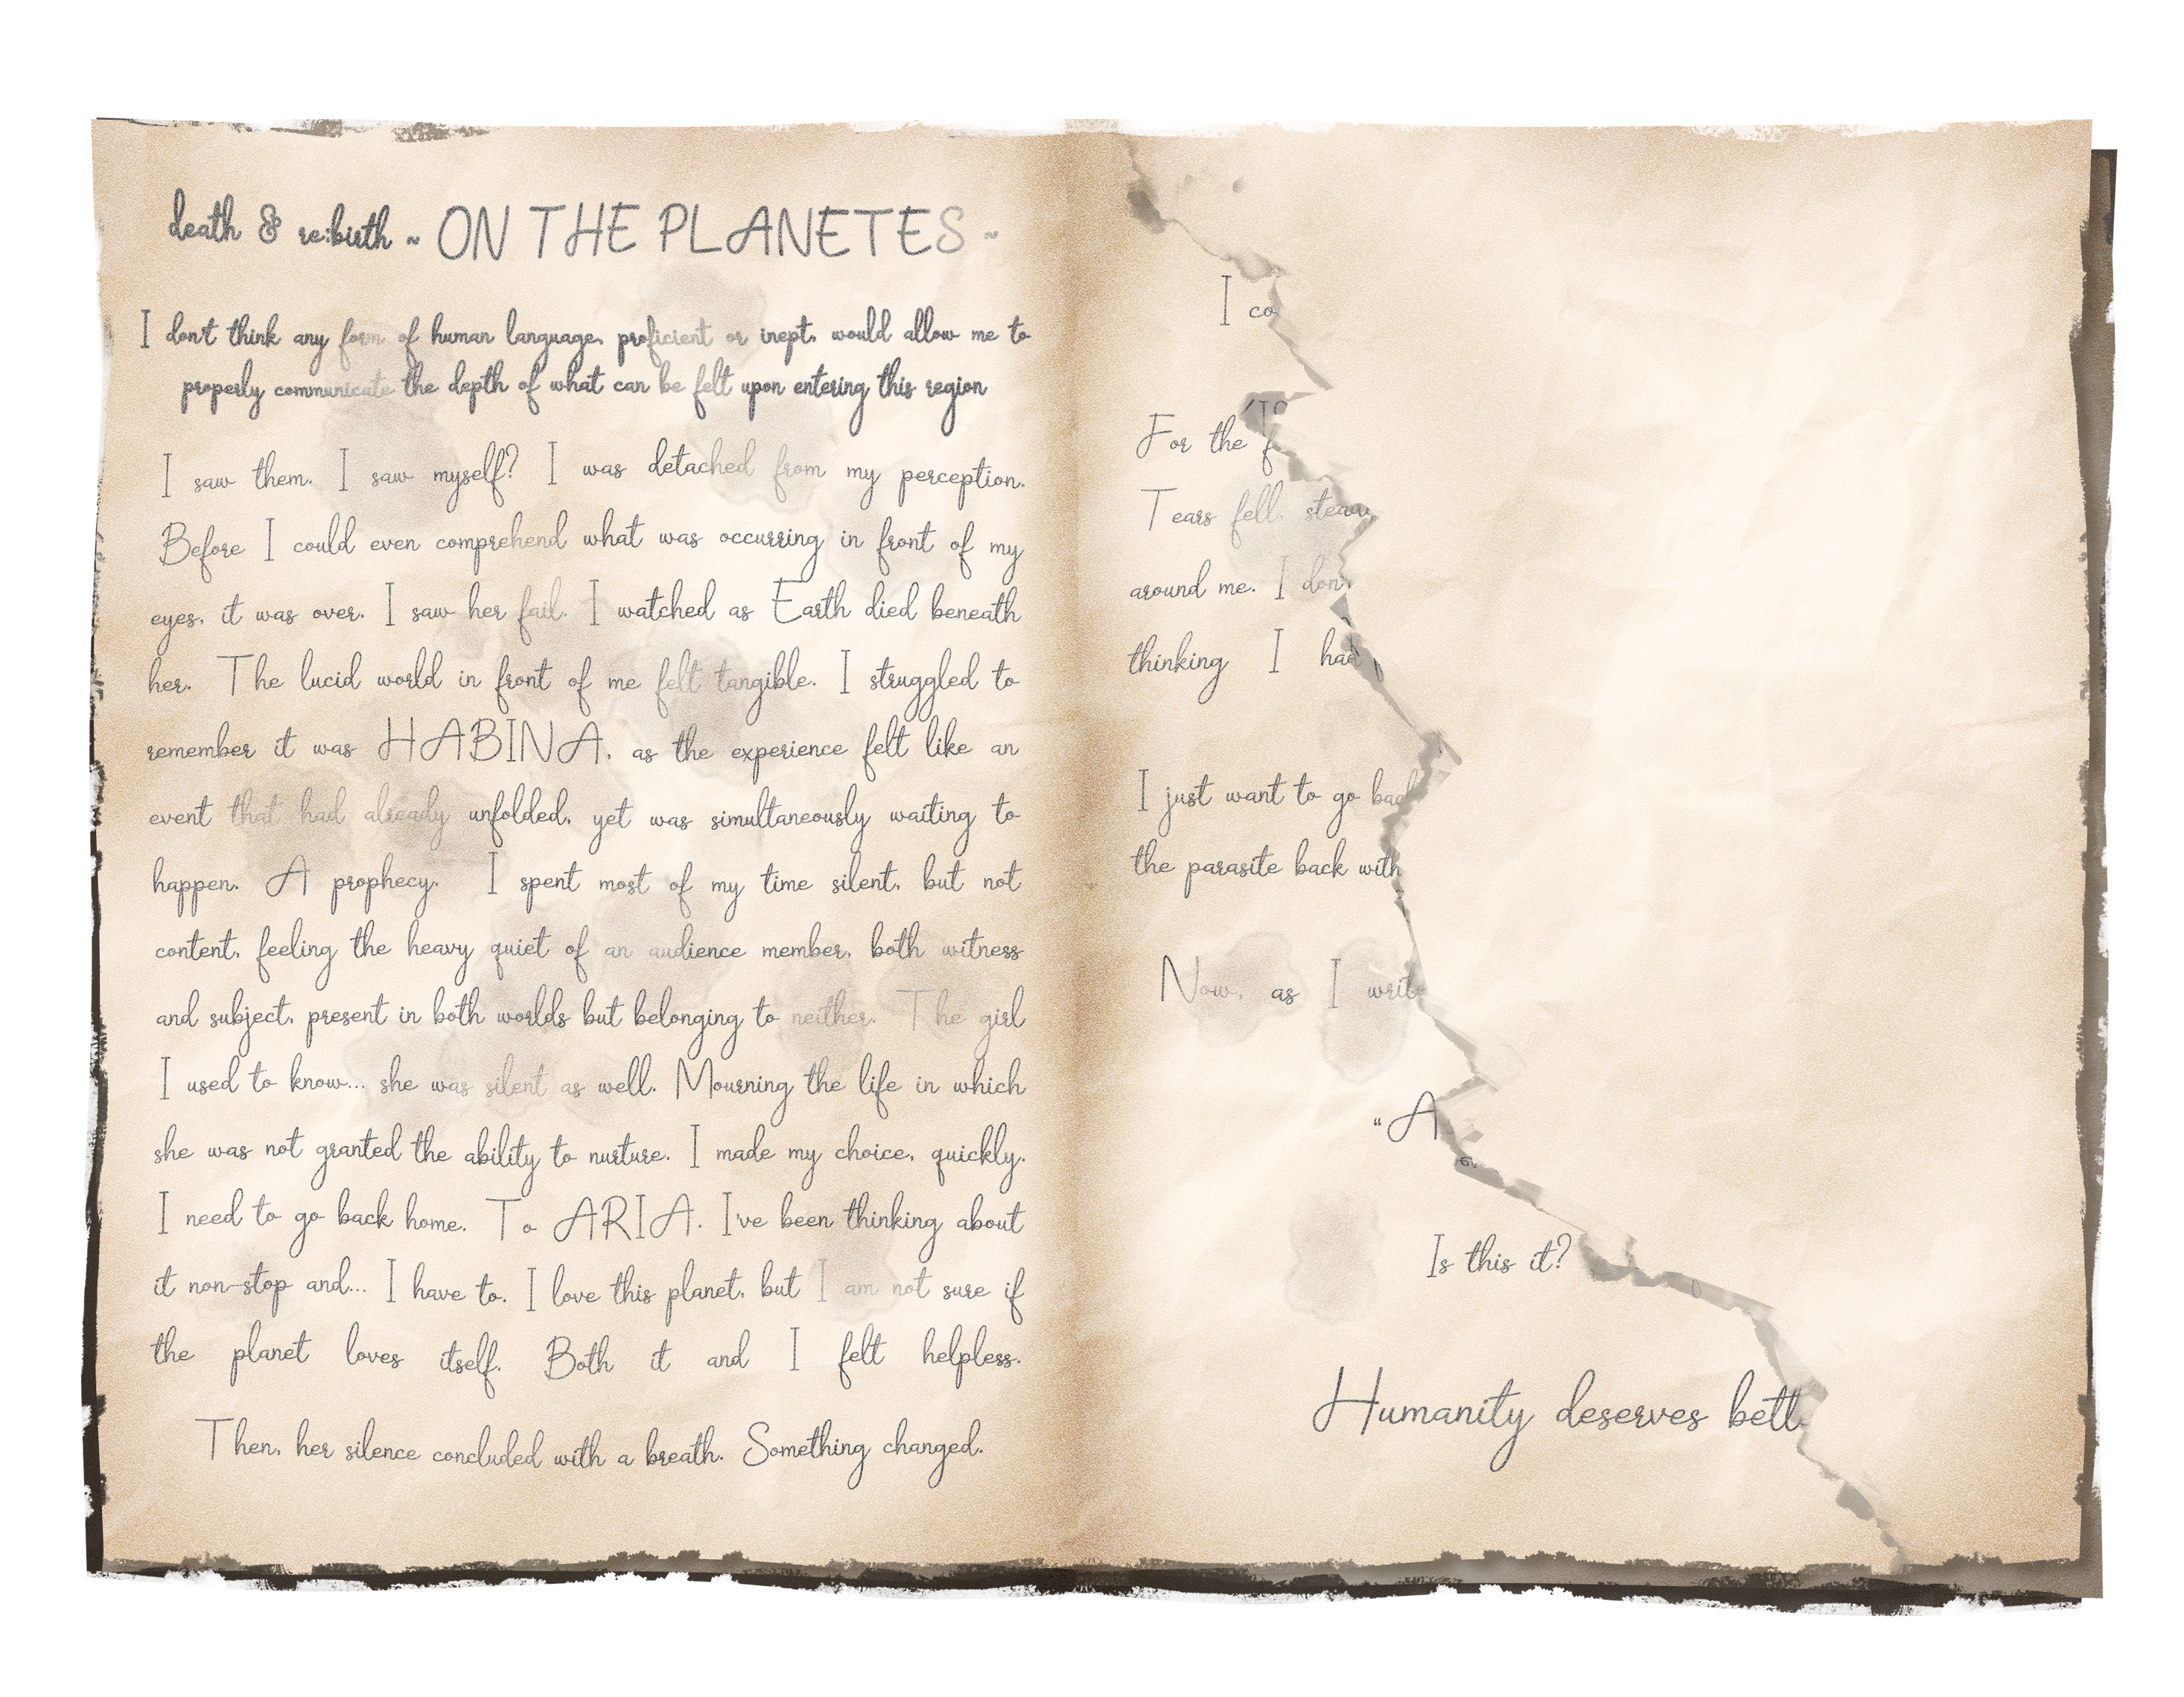 death & re:birth ~ ON THE PLANETES ~
I don't think any form of human language, proficient or inept, would allow me to
properly communicate the depth of what can be felt upon entering this region
I saw them. I saw myself? I was detached from my perception.
Before I could even comprehend what was occurring in front of my
eyes, it was over. I saw her fail. I watched as Earth died beneath
her. The lucid world in front of me felt tangible. I struggled to
remember it was HABINA, as the experience felt like an
event that had already unfolded, yet was simultaneously waiting to
happen. A prophecy. I spent most of my time silent, but not
content, feeling the heavy quiet of an audience member, both witness
and subject, present in both worlds but belonging to neither. The girl
I used to know... she was silent as well. Mourning the life in which
she was not granted the ability to nurture. I made my choice, quickly.
I need to go back home. To ARIA. I've been thinking about
it non-stop and... I have to. I love this planet, but I am not sure if
the planet loves itself. Both it and I felt helpless.
Then, her silence concluded with a breath. Something changed.
I co
For the f
Tears fell,
around me. I don
thinking I had
I just want to go back
the parasite back with
Now, as I write
"A
Is this it?
Humanity deserves bett